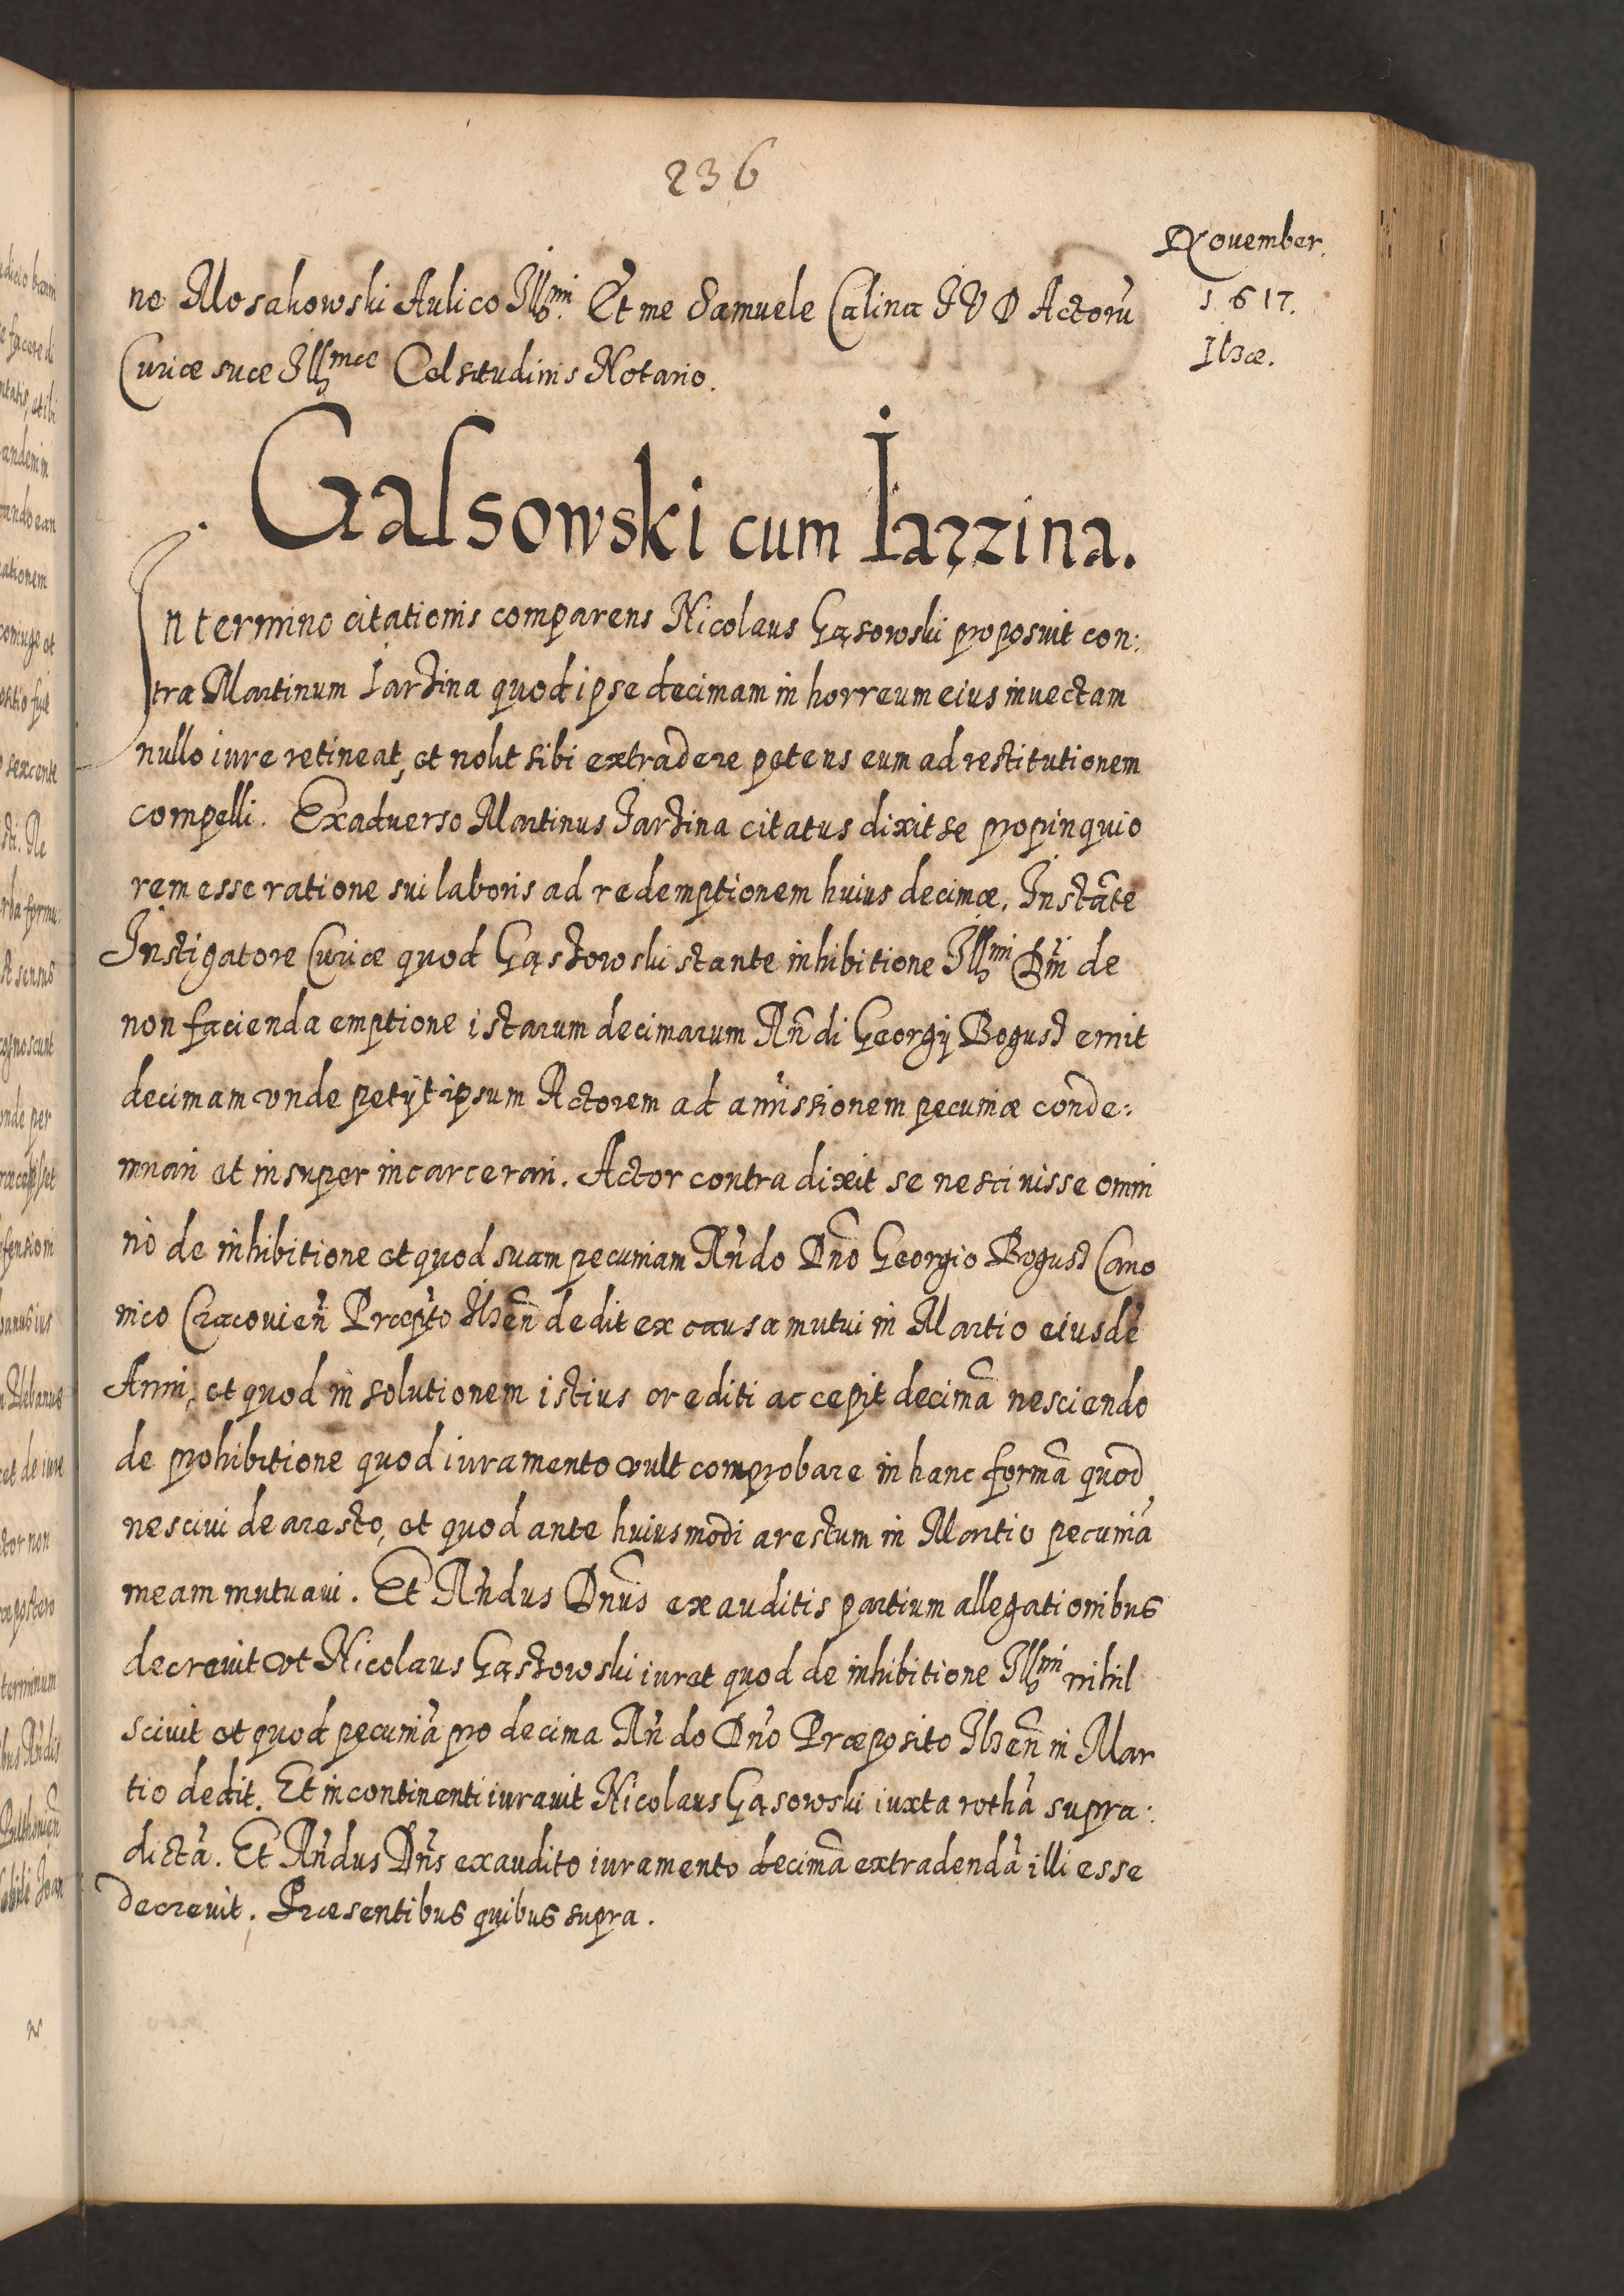 236
November.
1617.
Ilzæ.
ne Mosakowski Aulico Illmi. Et me Samuele Calina IVD Actorũ
Curiæ suæ Illmæ Celsitudinis Notario.
Galsowski cum Iarzina.
In termino citationis comparens Nicolaus Gąsowski proposuit con:
tra Martinum Iarzina quod ipse decimam in horreum eius inuectam
nullo iure retineat, et nolit sibi extradere petens eum ad restitutionem
compelli. Exaduerso Martinus Iarzina citatus dixit se propinquio
rem esse ratione sui laboris ad redemptionem huius decimæ. Instãte
Instigatore Curiæ quod Gąszowski stante inhibitione Illmi Dñi de
non facienda emptione istarum decimarum Rñdi Georgij Bogusz emit
decimam vnde petijt ipsum Actorem ad amissionem pecuniæ conde:
mnari et insuper incarcerari. Actor contra dixit se nesciuisse omni
no de inhibitione et quod suam pecuniam Rñdo Dño Georgio Bogusz Cano
nico Cracovieñ Præpto Ilzeñ dedit ex causa mutui in Martio eiusdẽ
Anni, et quod in solutionem istius crediti accepit decimã nesciendo
de prohibitione quod iuramento vult comprobare in hanc formã quod
nesciui de aresto, et quod ante huiusmodi arestum in Martio pecuniã
meam mutuaui. Et Rñdus Dnũs exauditis partium allegationibus
decreuit vt Nicolaus Gąszowski iuret quod de inhibitione Illmi nihil
sciuit et quod pecuniã pro decima Rñdo Dño Præposito Ilzeñ in Mar
tio dedit. Et incontinenti iurauit Nicolaus Gąsowski iuxta rothã supra:
dictã. Et Rñdus Dñs exaudito iuramento decimã extradendã illi esse
decreuit. Præsentibus quibus supra.